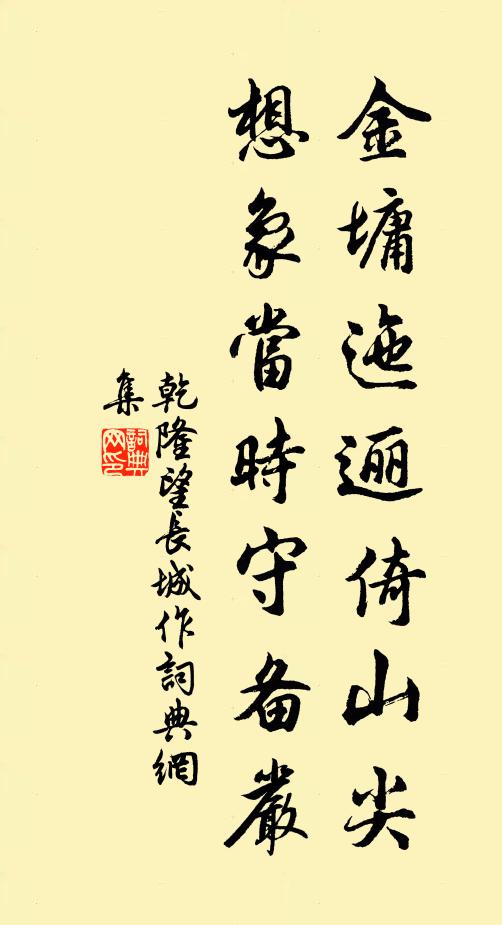 金墉迤逦倚山尖
想象當時守备嚴
乾隆望長城作詞典網
集
詞典
网印